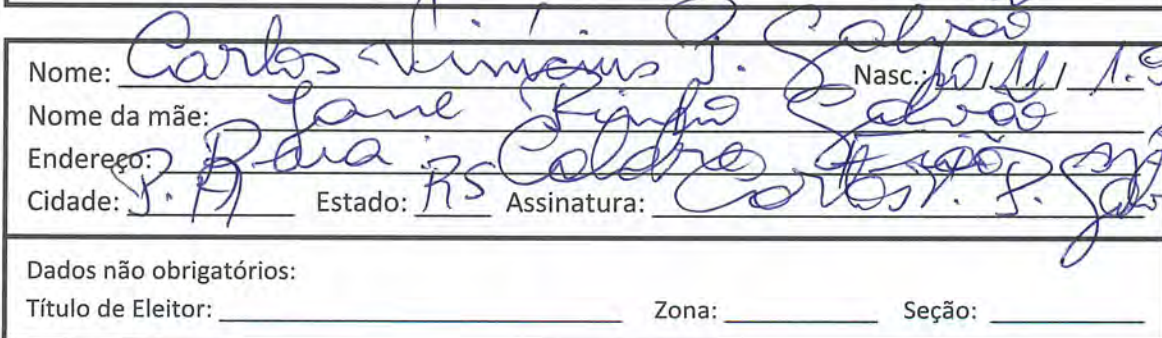 Nome: Carlos Vinicius P. Galvão Nasc.: 10/11/1.9
Nome da mãe: Jane Galvão
Endereço: Rua
Cidade: P. A Estado: RS Assinatura: Carlos V. P. Galv
Dados não obrigatórios:
Título de Eleitor: Zona: Seção: